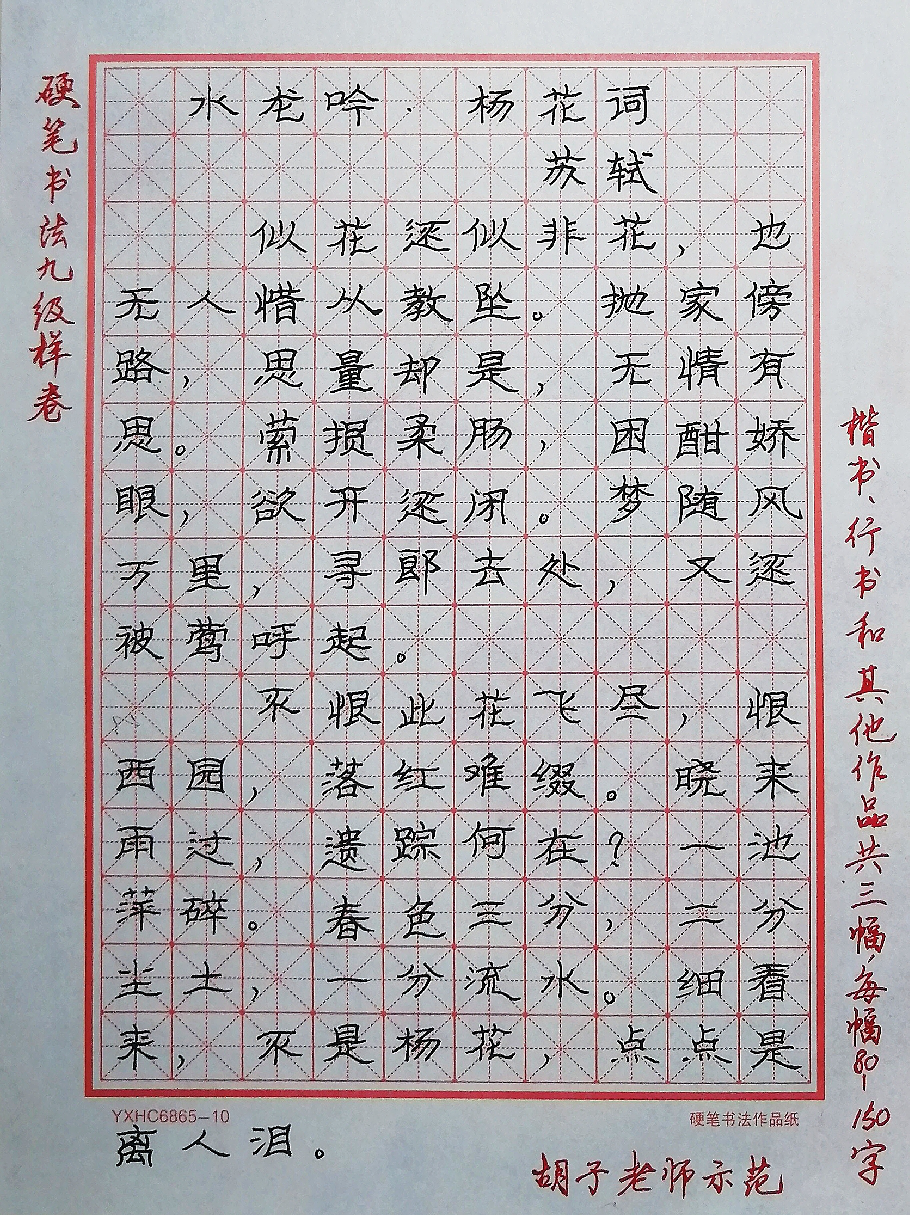 硬笔书法九级样卷
水龙吟·杨花词
苏轼
似花还似非花，也
无人惜从教坠。抛家傍
路，思量却是，无情有
思。萦损柔肠，困酣娇
眼，欲开还闭。梦随风
万里，寻郎去处，又还
被莺呼起。
不恨此花飞尽，恨
西园，落红难缀。晓来
雨过，遗踪何在？一池
萍碎。春色三分，二分
尘土，一分流水。细看
来，不是杨花，点点是
离人泪。
楷书、行书和其他作品共三幅，每幅80-150字
YXHC6865-10
硬笔书法作品纸
胡子老师示范